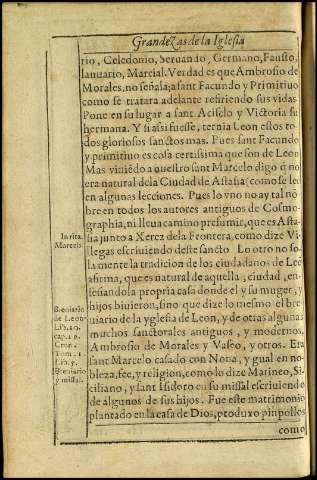 Grandezas de la Iglesia
rio, Celedonio, Seruando, Germano, Fausto,
Ianuario, Marcial. Verdad es que Ambrosio de
Morales, no señala; a sant Facundo y Primitiuo
como se tratara adelante refiriendo sus vidas
Pone en su lugar a sant Acisclo y Victoria su
hermana. Y si assi fuesse, ternia Leon estos to
dos gloriosos sanctos mas. Pues sant Facundo
y primitiuo es cosa certissima que son de Leon
Mas viniēdo a quest ro sant Marcelo digo q̄ no
era natural de la Ciudad de Astasia (como se lee
en algunas lecciones. Pues lo vno no ay tal nō
bre en todos los autores antiguos de Cosmo-
graphia, ni lleua camino presumir, que es Asta-
In vita
Marceli.
sia junto a Xerez de la Frontera, como dize Vi-
llegas escriuiendo deste sancto Lo otro no so-
la mente la tradicion de los ciudadanos de Leō
afirma, que es natural de aquella, ciudad, en-
señando la propria casa donde el y su muger, y
Breuiario
de Leon.
Lib. 10.
cap. 19.
Cron.
Tom. 1
Lib. 5.
Breuiario
y missal.
hijos biuieron, sino que dize lo mesmo el bre
uiario de la yglesia de Leon, y de otras algunas
muchos sanctorales antiguos, y modernos,
Ambrosio de Morales y Vaseo, y otros. Era
sant Marcelo casado con Nona, y gual en no-
bleza, fee, y religion, como lo dize Marineo, Si-
ciliano, y sant Isidoro en su missal escriuiendo
de algunos de sus hijos. Fue este matrimonio
plantado en la casa de Dios, produxo pinpollos
como